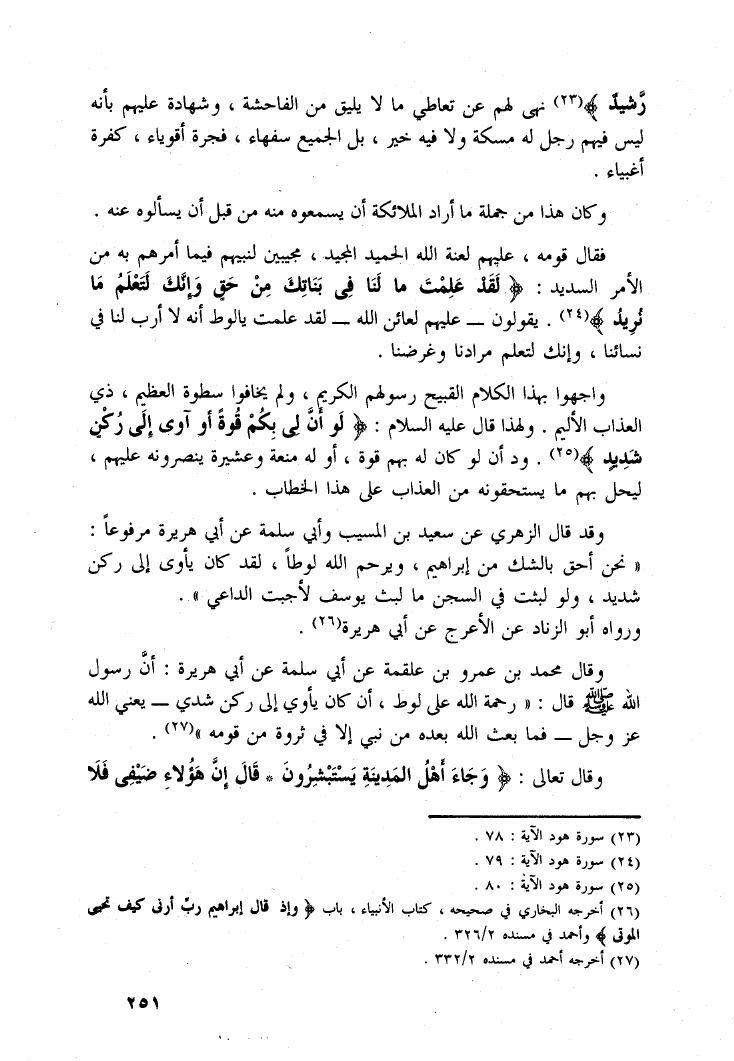 رَّشيدٌ ﴾(٢٣) نهى لهم عن تعاطي ما لا يليق من الفاحشة ، وشهادة عليهم بأنه
ليس فيهم رجل له مسكة ولا فيه خير ، بل الجميع سفهاء ، فجرة أقوياء ، كفرة
أغبياء .
وكان هذا من جملة ما أراد الملائكة أن يسمعوه منه من قبل أن يسألوه عنه .
فقال قومه ، عليهم لعنة الله الحميد المجيد ، مجيبين لنبيهم فيما أمرهم به من
الأمر السديد : ﴿ لَقَدْ عَلِمْتَ ما لَنَا فِى بَنَاتِكَ مِنْ حَقٍ وَإِنَّكَ لَتَعْلَمُ مَا
نُرِيدُ ﴾(٢٤) . يقولون ــ عليهم لعائن الله ــ لقد علمت يالوط أنه لا أرب لنا في
نسائنا ، وإنك لتعلم مرادنا وغرضنا .
واجهوا بهذا الكلام القبيح رسولهم الكريم ، ولم يخافوا سطوة العظيم ، ذي
العذاب الأليم . ولهذا قال عليه السلام : ﴿ لَو أَنَّ لِى بِكُمْ قُوةً أو آوى إلَى رُكْنٍ
شَدِيدٍ ﴾(٢٥) . ود أن لو كان له بهم قوة ، أو له منعة وعشيرة ينصرونه عليهم ،
ليحل بهم ما يستحقونه من العذاب على هذا الخطاب .
وقد قال الزهري عن سعيد بن المسيب وأبي سلمة عن أبي هريرة مرفوعاً :
« نحن أحق بالشك من إبراهيم ، ويرحم الله لوطاً ، لقد كان يأوى إلى ركن
شديد ، ولو لبثت في السجن ما لبث يوسف لأجبت الداعي » .
ورواه أبو الزناد عن الأعرج عن أبي هريرة(٢٦) .
وقال محمد بن عمرو بن علقمة عن أبي سلمة عن أبي هريرة : أنَّ رسول
الله ﷺ قال : « رحمة الله على لوط ، أن كان يأوي إلى ركن شدي ــ يعني الله
عز وجل ــ فما بعث الله بعده من نبي إلا في ثروة من قومه »(٢٧) .
وقال تعالى : ﴿ وَجَاءَ أَهْلُ المَدِينَةِ يَسْتَبْشِرُونَ * قَالَ إِنَّ هَؤُلاءِ ضَيْفِى فَلَا
(٢٣) سورة هود الآية : ٧٨ .
(٢٤) سورة هود الآية : ٧٩ .
(٢٥) سورة هود الآية : ٨٠ .
(٢٦) أخرجه البخاري في صحيحه ، كتاب الأنبياء ، باب ﴿ وإذ قال إبراهيم ربّ أرنى كيف تحيى
الموتى ﴾ وأحمد في مسنده ٣٢٦/٢ .
(٢٧) أخرجه أحمد في مسنده ٣٣٢/٢ .
٢٥١